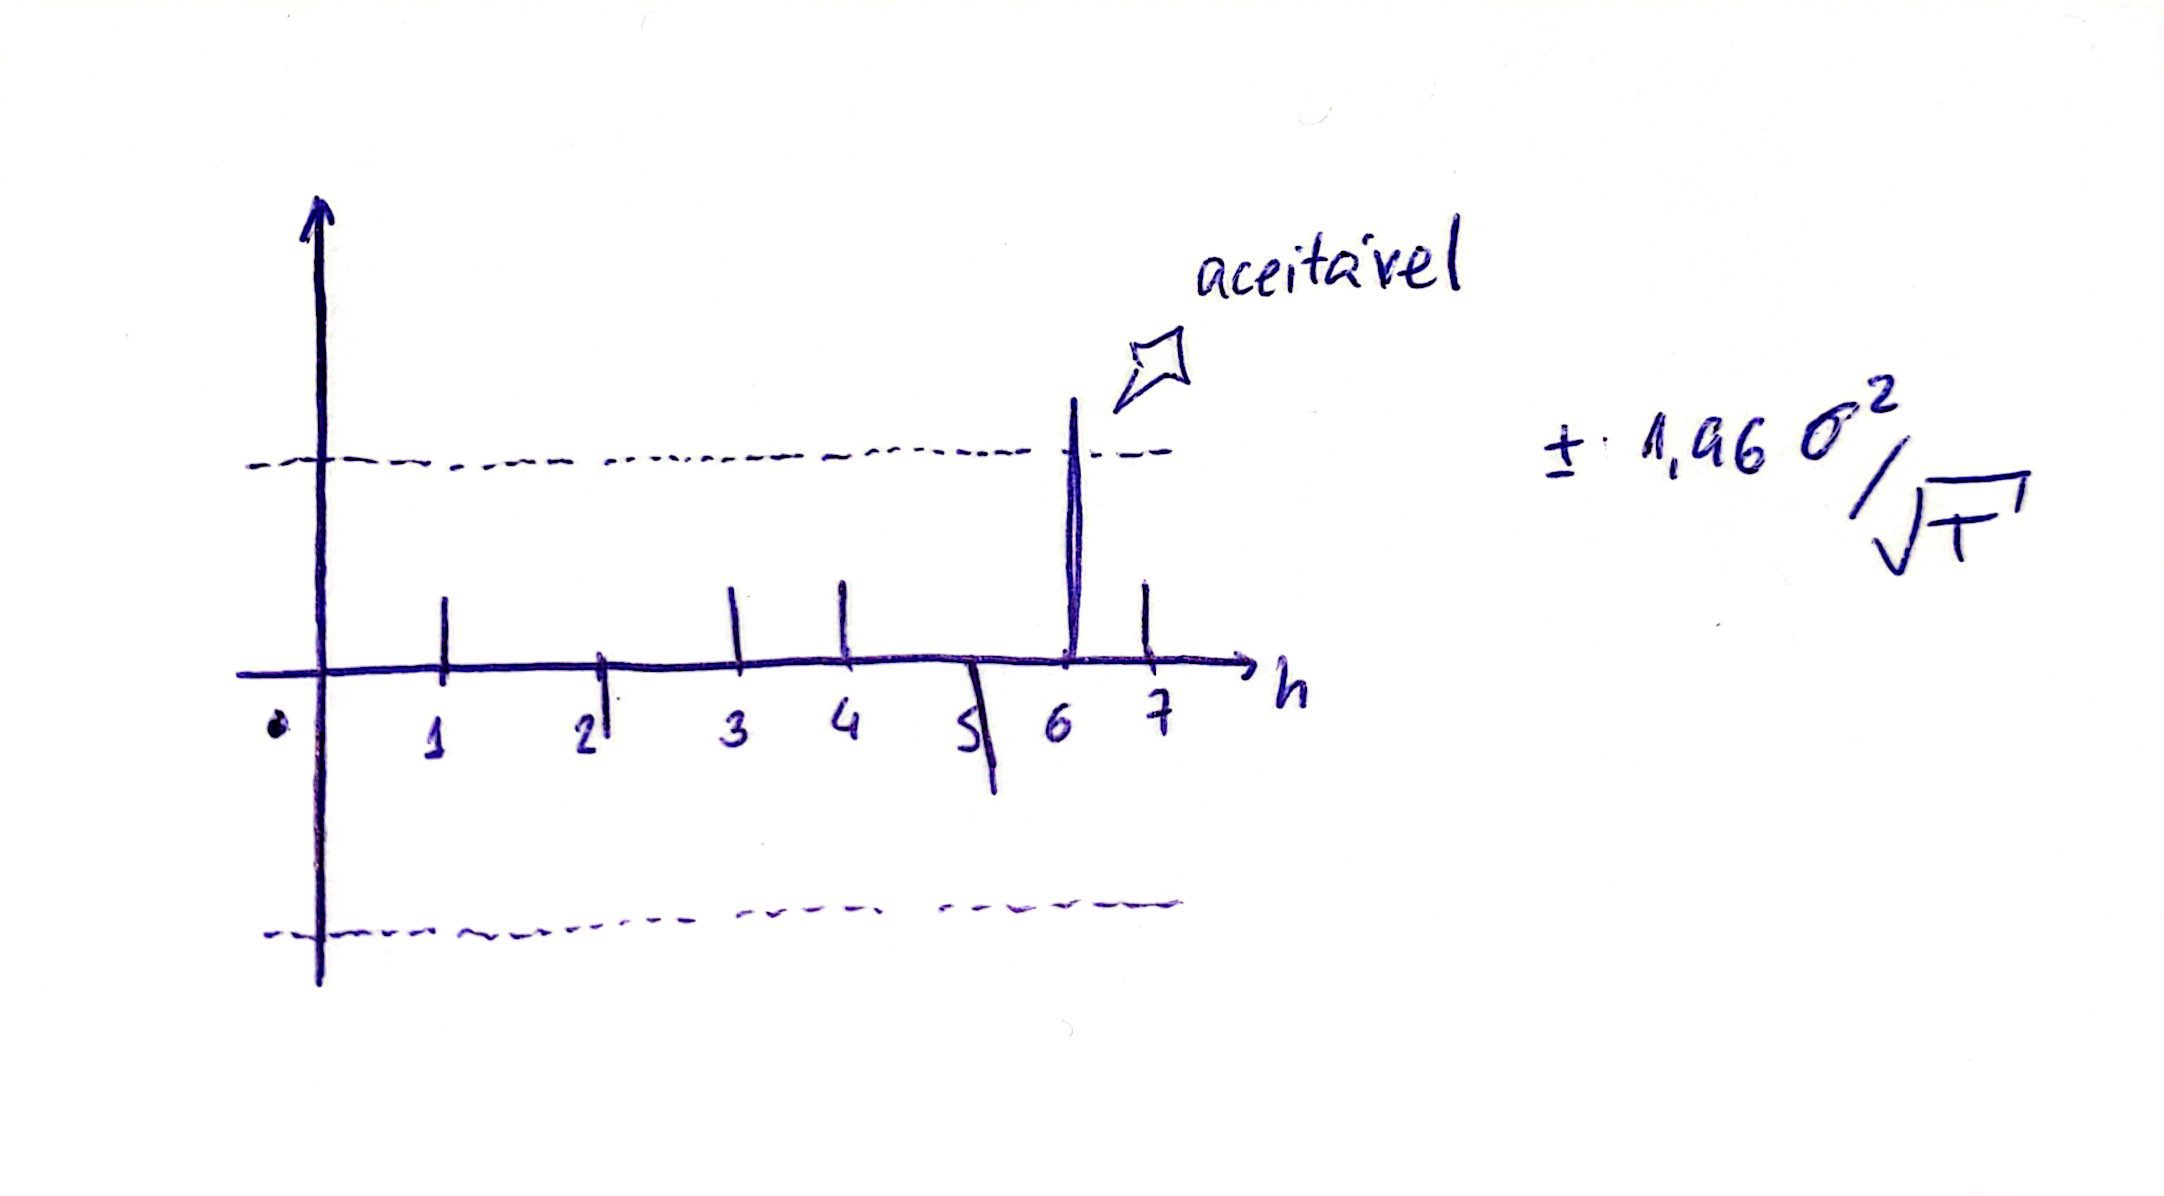 aceitável
± 1,96 σ²/√T
h
0 1 2 3 4 5 6 7